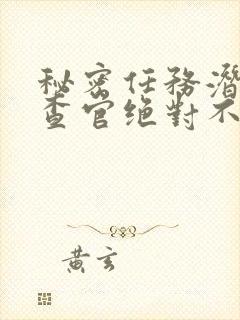 秘密任務潛
查官绝對不
黃玄